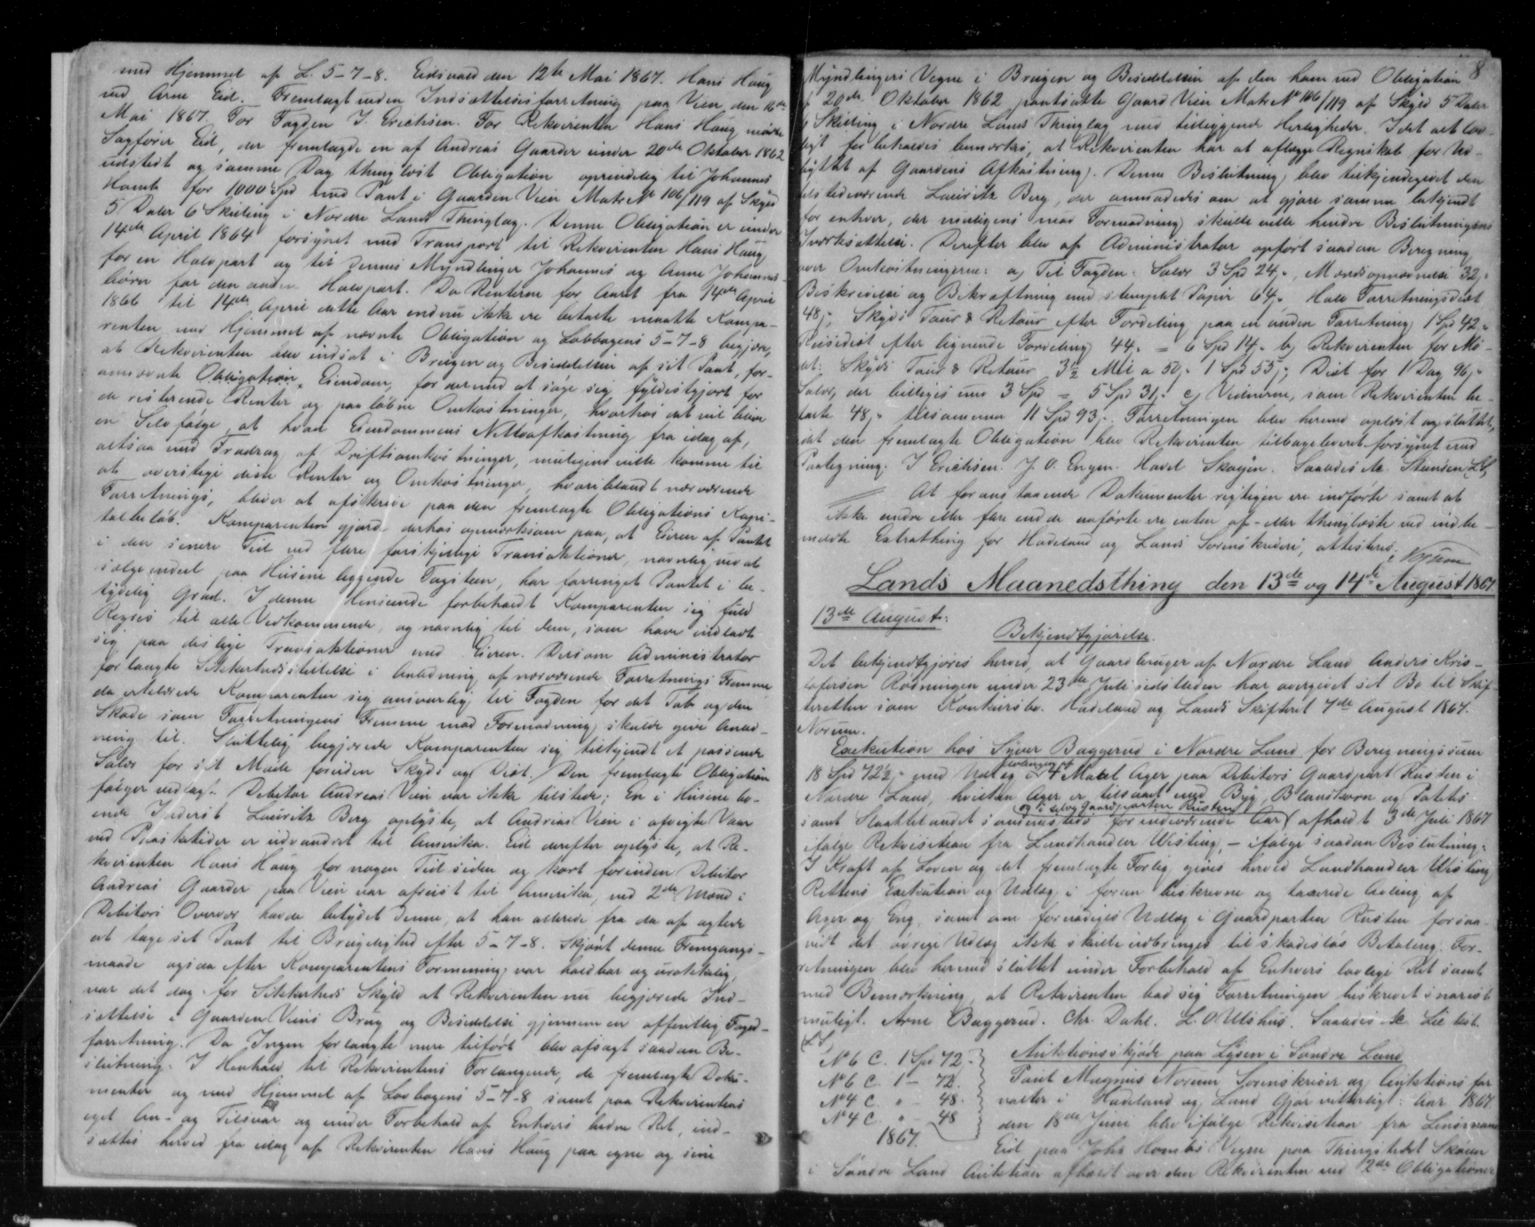 med Hjemmel af L. 5-7-8. Eidsvold den 12te Mai 1867. Hans Haug
ved Arne Eid. Fremlagt under Indsættelsesforretning paa Vien den 16de
Mai 1867. For Fogden J. Erichsen. For Rekvirenten Hans Haug mødte
Sagfører Eid, der fremlagde en af Andreas Gaarder under 20de Oktober 1862
udstedt og samme Dag thinglæst Obligation oprindelig til Johannes
Homb for 1000 Spd med Pant i Gaarden Vien Matr No 106/119 af Skyld
5 Daler 6 Skilling i Nordre Lands Thinglag. Denne Obligation er under
14de April 1864 forsynet med Transport til Rekvirenten Hans Haug
for en Halvpart og til dennes Myndlinger Johannes og Anne Johannes-
børn for den anden Halvpart. Da Renterne for Aaret fra 14de April
1866 til 14de April dette Aar endnu ikke ere betalte maatte Kompa-
renten med Hjemmel af nævnte Obligation og Lovbogens 5-7-8 begjære,
at Rekvirenten blev indsat i Brugen og Besiddelsen af sit Pant, for-
anførte Obligation, Eiendom, for derved at søge sig fyldestgjort for
de resterende Renter og paaløbne Omkostninger, hvorhos det vil blive
en Selvfølge, at hvad Eiendommens Nettoafkastning fra idag af,
altsaa med Fradrag af Driftsomkostninger, muligens vilde komme til
at overstige disse Renter og Omkostninger, hvoriblandt nærværende
Forretnings, bliver at afskrive paa den fremlagte Obligations Kapi-
talbeløb. Komparenten gjorde derhos opmærksom paa, at Eieren af Pantet
i den senere Tid ved flere forskjellige Transaktioner, navnlig ved at
sælge endeel paa Husene liggende Tagsten, har forringet Pantet i be-
tydelig Grad. I denne Henseende forbeholdt Komparenten sig fuld
Regres til alle Vedkommende, og navnlig til dem, som have indladt
sig paa deslige Transaktioner med Eieren. Dersom Administrator
forlangte Sikkerhedsstillelse i Anledning af nærværende Forretnings Fremme
da erklærede Komparenten sig ansvarlig til Fogden for det Tab og den
Skade som Forretningens Fremme mod Formodning skulde give Anled-
ning til. Sluttelig begjærede Komparenten sig tilkjendt et passende
Salær for sit Møde foruden Skyds og Diæt. Den fremlagte Obligation
følger vedlagt. Debitor Andreas Vien var ikke tilstede; En i Husene bo-
ende Inderst Lauritz Berg oplyste, at Andreas Vien i afvigte Vaar
ved Paasketider er udvandret til Amerika. Eid derefter oplyste, at Re-
kvirenten Hans Haug for nogen Tid siden og kort forinden Debitor
Andreas Gaarder paa Vien var afreist til Amerika, ved 2de Mænd i
Debitors Overvær havde betydet Denne, at han allerede fra da af agtede
at tage sit Pant til Brugelighed efter 5-7-8. Skjønt denne Fremgangs-
maade ogsaa efter Komparentens Formening var holdbar og urokkelig,
var det dog for Sikkerheds Skyld at Rekvirenten nu begjærede Ind-
sættelse i Gaarden Viens Brug og Besiddelse gjennem en offentlig Foged-
forretning. Da Ingen forlangte mere tilført blev afsagt saadan Be-
slutning: I Henhold til Rekvirentens Forlangende, de fremlagte Doku-
menter og med Hjemmel af Lovbogens 5-7-8 samt paa Rekvirentens
eget An- og Tilsvar og under Forbehold af Enhvers bedre Ret, ind-
sættes herved fra idag af Rekvirenten Hans Haug paa egne og sine
8
Myndlingers Vegne i Brugen og Besiddelsen af den ham ved Obligation
af 20de Oktober 1862 pantsatte Gaard Vien Matr No 106/119 af Skyld 5 Daler
6 Skilling i Nordre Lands Thinglag med tilliggende Herligheder. Idet det lov-
ligt forbeholdes bemærkes, at Rekvirenten har at aflægge Regnskab for Ud-
byttet af Gaardens Afkastning. Denne Beslutning blev tilkjendegivet den
tilstedeværende Lauritz Berg, der anmodedes om at gjøre samme bekjendt
for enhver, der muligens mod Formodning skulde ville hindre Beslutningens
Iværksættelse. Derefter blev af Administrator opført saadan Beregning
over Omkostningerne: a) Til Fogden: Salær 3 Spd 24, Mændsopnævnelse 32,
Beskrivelse og Bekræftning med stemplet Papir 64. Halv Forretningsdiæt
48; Skyds Tour & Retour efter Fordeling paa en anden Forretning 1 Spd 42.
Reisediæt efter lignende Fordeling 44. = 6 Spd 14. b) Rekvirenten for Mø-
det: Skyds Tour & Retour 3½ Mil a 50. 1 Spd 55; Diæt for 1 Dag 96.
Salær, der billiges med 3 Spd = 5 Spd 31. c) Vidnerne, som Rekvirenten be-
talte 48, tilsammen 11 Spd 93. Forretningen blev hermed oplæst og sluttet,
idet den fremlagte Obligation blev Rekvirenten tilbageleveret forsynet med
Paategning. J Erichsen. J. O. Engen. Hovel Skogen. Saaledes &c. Stenden
At foranstaaende Dokumenter rigtigen ere indførte samt at
ikke andre eller flere end de anførte ere enten af- eller thinglæste ved indbe-
meldte Extrathing for Hadeland og Lands Sorenskriveri, attesteres. Norum
Lands Maanedsthing den 13de og 14de August 1867
13de August:
Bekjendtgjørelse.
Det bekjendtgjøres herved, at Gaardbruger af Nordre Land Anders Kris-
tofersen Rødningen under 23de Juli sidstleden har overgivet sit Bo til Skif-
teretten som Konkursbo. Hadeland og Lands Skifteret 7de August 1867.
Norum.
Exekution hos Syver Baggerud i Nordre Land for Beregningssum
18 Spd 72½ med Udlæg i 4 Maal Ager paa Debitors Gaardpart Rusten i
Nordre Land, hvilken Ager er tilsaaet med Byg, Blandkorn og Potetes
samt Slaattelandet sammesteds for indeværende Aar og i selve Gaardparten Rusten afholdt 3de Juli 1867
ifølge Rekvisition fra Landhandler Wisting, – ifølge saadan Beslutning:
I Kraft af Loven og det fremlagte Forlig gives herved Landhandler Wisting
Rettens Exekution og Udlæg i foran beskrevne og taxerede Avling af
Ager og Eng, samt om fornødiges Udlæg i Gaardparten Rusten forsaa-
vidt det øvrige Udlæg ikke skulde indbringes til skadesløs Betaling. For-
retningen blev hermed sluttet under Forbehold af Enhvers lovlige Ret samt
med Bemærkning, at Rekvirenten bad sig Forretningen beskrevet snarest
muligt. Arne Baggerud. Chr. Dahl. L. O Ulshus. Saaledes &c Lie Const.
No 6 C. 1 Spd 72
No 6 C. 1 – 72.
No 4 C. " – 48.
No 4 C. " – 48
1867.
Auktionsskjøde paa Lysen i Søndre Land
Poul Magnus Norum Sorenskriver og Auktionsfor-
valter i Hadeland og Land Gjør vitterligt: Aar 1867
den 18de Juni blev ifølge Rekvisition fra Lensmand
Eid paa Johs Hombs Vegne paa Thingstedet Skøien
i Søndre Land Auktion afholdt over den Rekvirenten ved 2de Obligationer